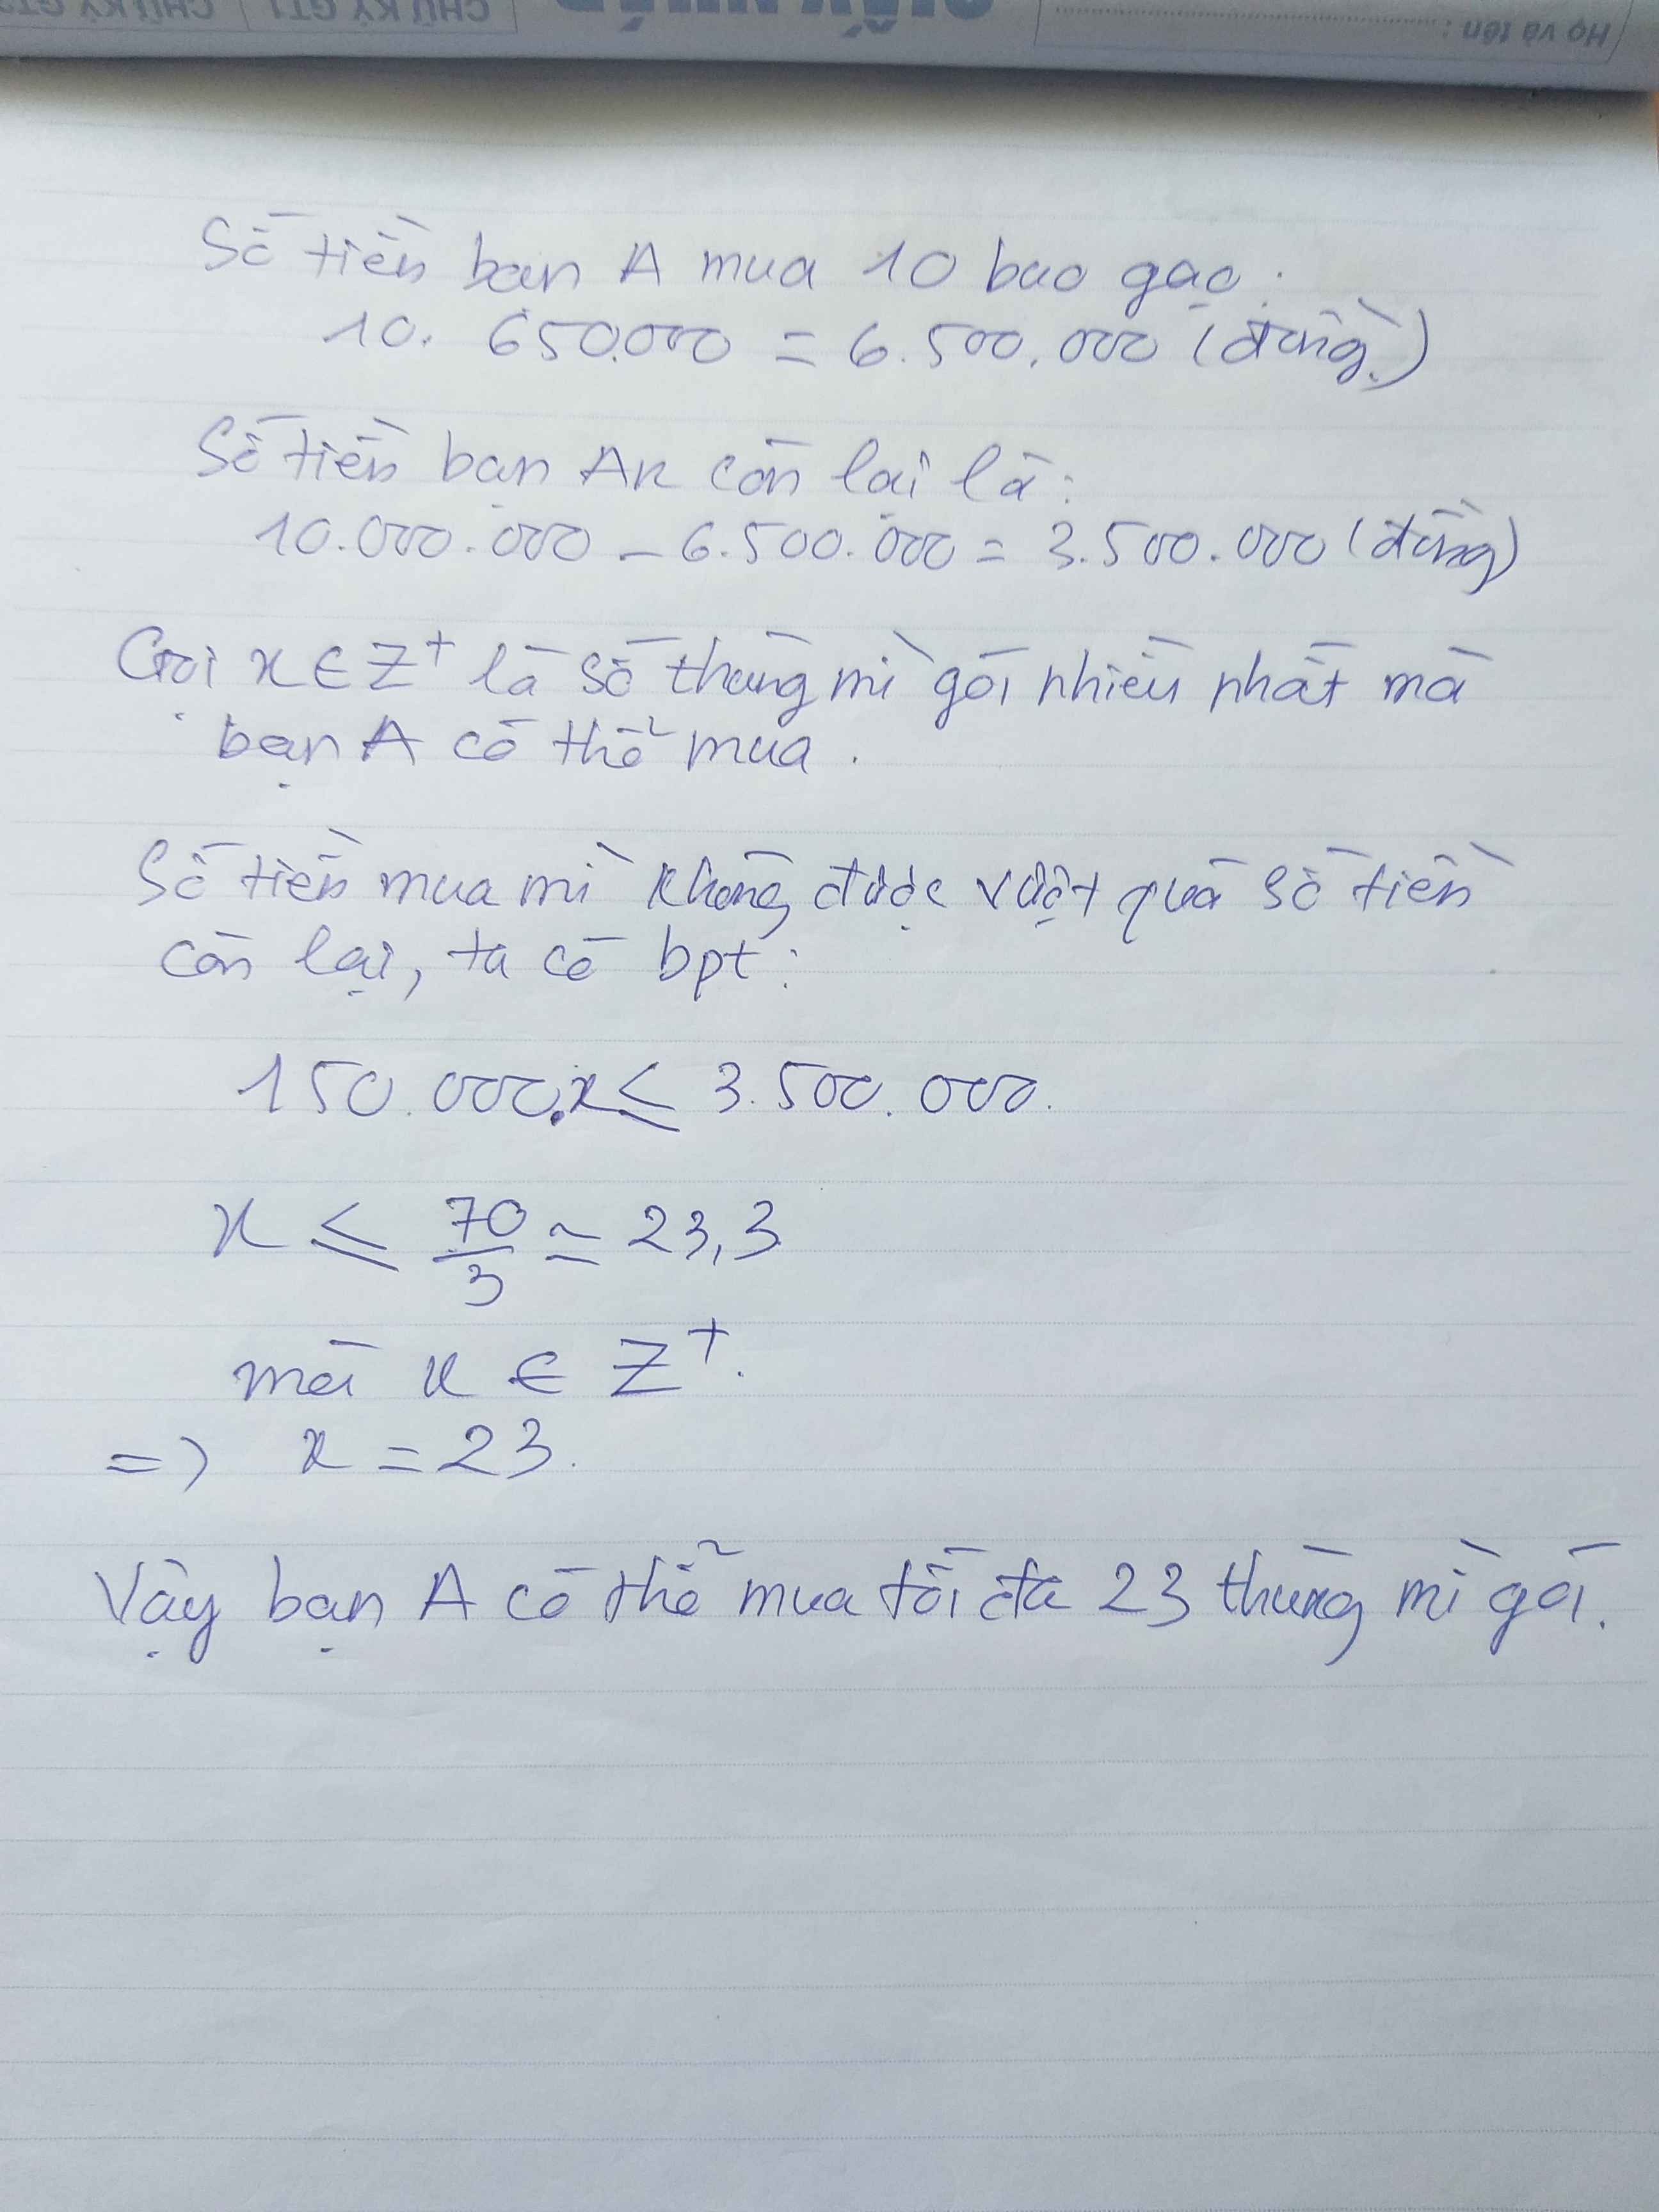 CHỮ KÝ GT1
CHỮ KÝ GT2
GIẤY NHÁP
Họ và tên :
Số tiền bạn A mua 10 bao gạo :
10. 650.000 = 6.500.000 (đồng.)
Số tiền bạn An còn lại là :
10.000.000 - 6.500.000 = 3.500.000 (đồng)
Gọi x ∈ Z⁺ là số thùng mì gói nhiều nhất mà
bạn A có thể mua .
Số tiền mua mì không được vượt quá số tiền
còn lại, ta có bpt :
150.000.x ≤ 3.500.000.
x ≤ 70/3 ≃ 23,3
mà x ∈ Z⁺.
=> x = 23.
Vậy bạn A có thể mua tối đa 23 thùng mì gói.